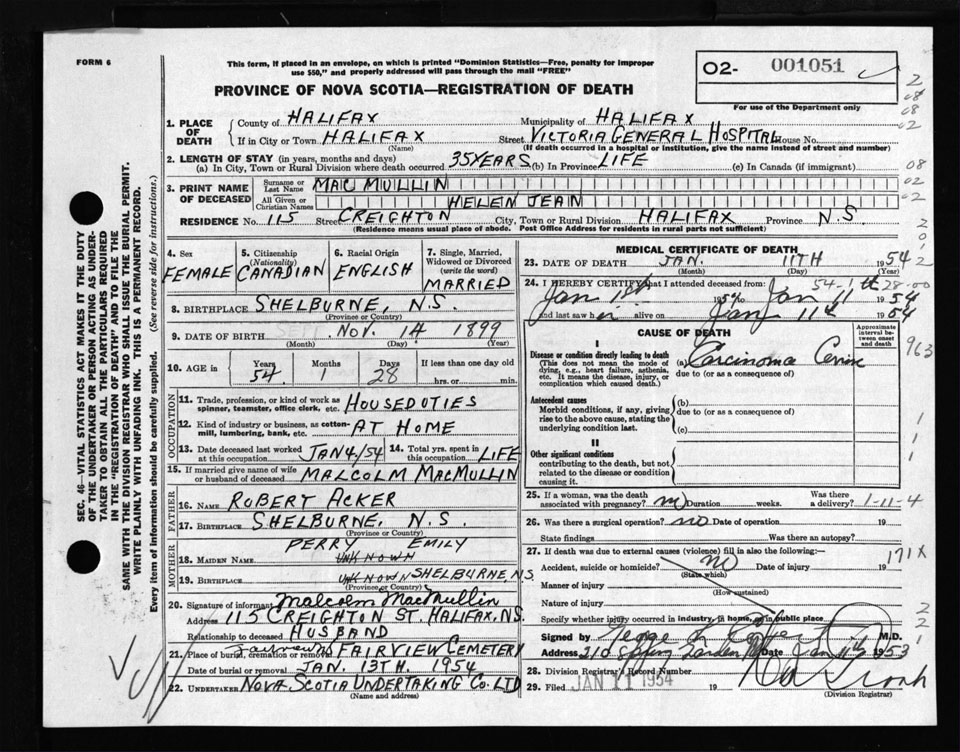 FORM 6
This form, if placed in an envelope, on which is printed "Dominion Statistics—Free, penalty for improper
use $50," and properly addressed will pass through the mail "FREE"
PROVINCE OF NOVA SCOTIA—REGISTRATION OF DEATH
02- 001051
For use of the Department only
SEC. 46—VITAL STATISTICS ACT MAKES IT THE DUTY
OF THE UNDERTAKER OR PERSON ACTING AS UNDER-
TAKER TO OBTAIN ALL THE PARTICULARS REQUIRED
IN THE "REGISTRATION OF DEATH" AND TO FILE THE
SAME WITH THE DIVISION REGISTRAR WHO SHALL ISSUE THE BURIAL PERMIT.
WRITE PLAINLY WITH UNFADING INK. THIS IS A PERMANENT RECORD.
Every item of information should be carefully supplied. (See reverse side for instructions.)
1. PLACE OF DEATH
County of HALIFAX Municipality of HALIFAX
If in City or Town HALIFAX Street VICTORIA GENERAL HOSPITAL House No.
(Name) (If death occurred in a hospital or institution, give the name instead of street and number)
2. LENGTH OF STAY (in years, months and days)
(a) In City, Town or Rural Division where death occurred 35 YEARS (b) In Province LIFE (c) In Canada (if immigrant)
3. PRINT NAME OF DECEASED
Surname or Last Name MAC MULLIN
All Given or Christian Names HELEN JEAN
RESIDENCE No. 115 Street CREIGHTON City, Town or Rural Division HALIFAX Province N.S.
(Residence means usual place of abode. Post Office Address for residents in rural parts not sufficient)
4. Sex FEMALE
5. Citizenship (Nationality) CANADIAN
6. Racial Origin ENGLISH
7. Single, Married, Widowed or Divorced (write the word) MARRIED
8. BIRTHPLACE SHELBURNE, N.S.
(Province or Country)
9. DATE OF BIRTH NOV. 14 1899
(Month) (Day) (Year)
10. AGE in Years 54 Months 1 Days 28 If less than one day old
hrs. or min.
OCCUPATION
11. Trade, profession, or kind of work as
spinner, teamster, office clerk, etc. HOUSEDUTIES
12. Kind of industry or business, as cotton-
mill, lumbering, bank, etc. AT HOME
13. Date deceased last worked
at this occupation JAN 4/54
14. Total yrs. spent
in this occupation LIFE
15. If married give name of wife
or husband of deceased MALCOLM MACMULLIN
FATHER
16. NAME ROBERT ACKER
17. BIRTHPLACE SHELBURNE, N.S.
(Province or Country)
MOTHER
PERRY EMILY
18. MAIDEN NAME UNKNOWN
19. BIRTHPLACE UNKNOWN SHELBURNE N.S.
(Province or Country)
20. Signature of informant Malcolm MacMullin
Address 115 CREIGHTON ST. HALIFAX, N.S.
Relationship to deceased HUSBAND
21. Place of burial, cremation or removal Fairview FAIRVIEW CEMETERY
Date of burial or removal JAN. 13TH. 1954
22. UNDERTAKER NOVA SCOTIA UNDERTAKING CO. LTD
(Name and address)
MEDICAL CERTIFICATE OF DEATH
23. DATE OF DEATH JAN. 11TH 1954
(Month) (Day) (Year)
24. I HEREBY CERTIFY that I attended deceased from:
Jan 1st 1954 to Jan 11 1954
and last saw her alive on Jan 11th 1954
CAUSE OF DEATH
Approximate interval between onset and death
I
Disease or condition directly leading to death
(This does not mean the mode of
dying, e.g., heart failure, asthenia,
etc. It means the disease, injury, or
complication which caused death.)
(a) Carcinoma Cervix
due to (or as a consequence of)
Antecedent causes
Morbid conditions, if any, giving
rise to the above cause, stating the
underlying condition last.
(b)
due to (or as a consequence of)
(c)
II
Other significant conditions
contributing to the death, but not
related to the disease or condition
causing it.
963
25. If a woman, was the death
associated with pregnancy? no Duration weeks. Was there
a delivery? 1-11-4
26. Was there a surgical operation? no Date of operation 19
State findings Was there an autopsy?
27. If death was due to external causes (violence) fill in also the following:— 171X
Accident, suicide or homicide? no Date of injury 19
(State which)
Manner of injury
(How sustained)
Nature of injury
Specify whether injury occurred in industry, in home, or in public place
Signed by M.D.
Address 210 Spring Garden Rd Date Jan 11th 1953
28. Division Registrar's Record Number
29. Filed JAN 11 1954 19
(Division Registrar)